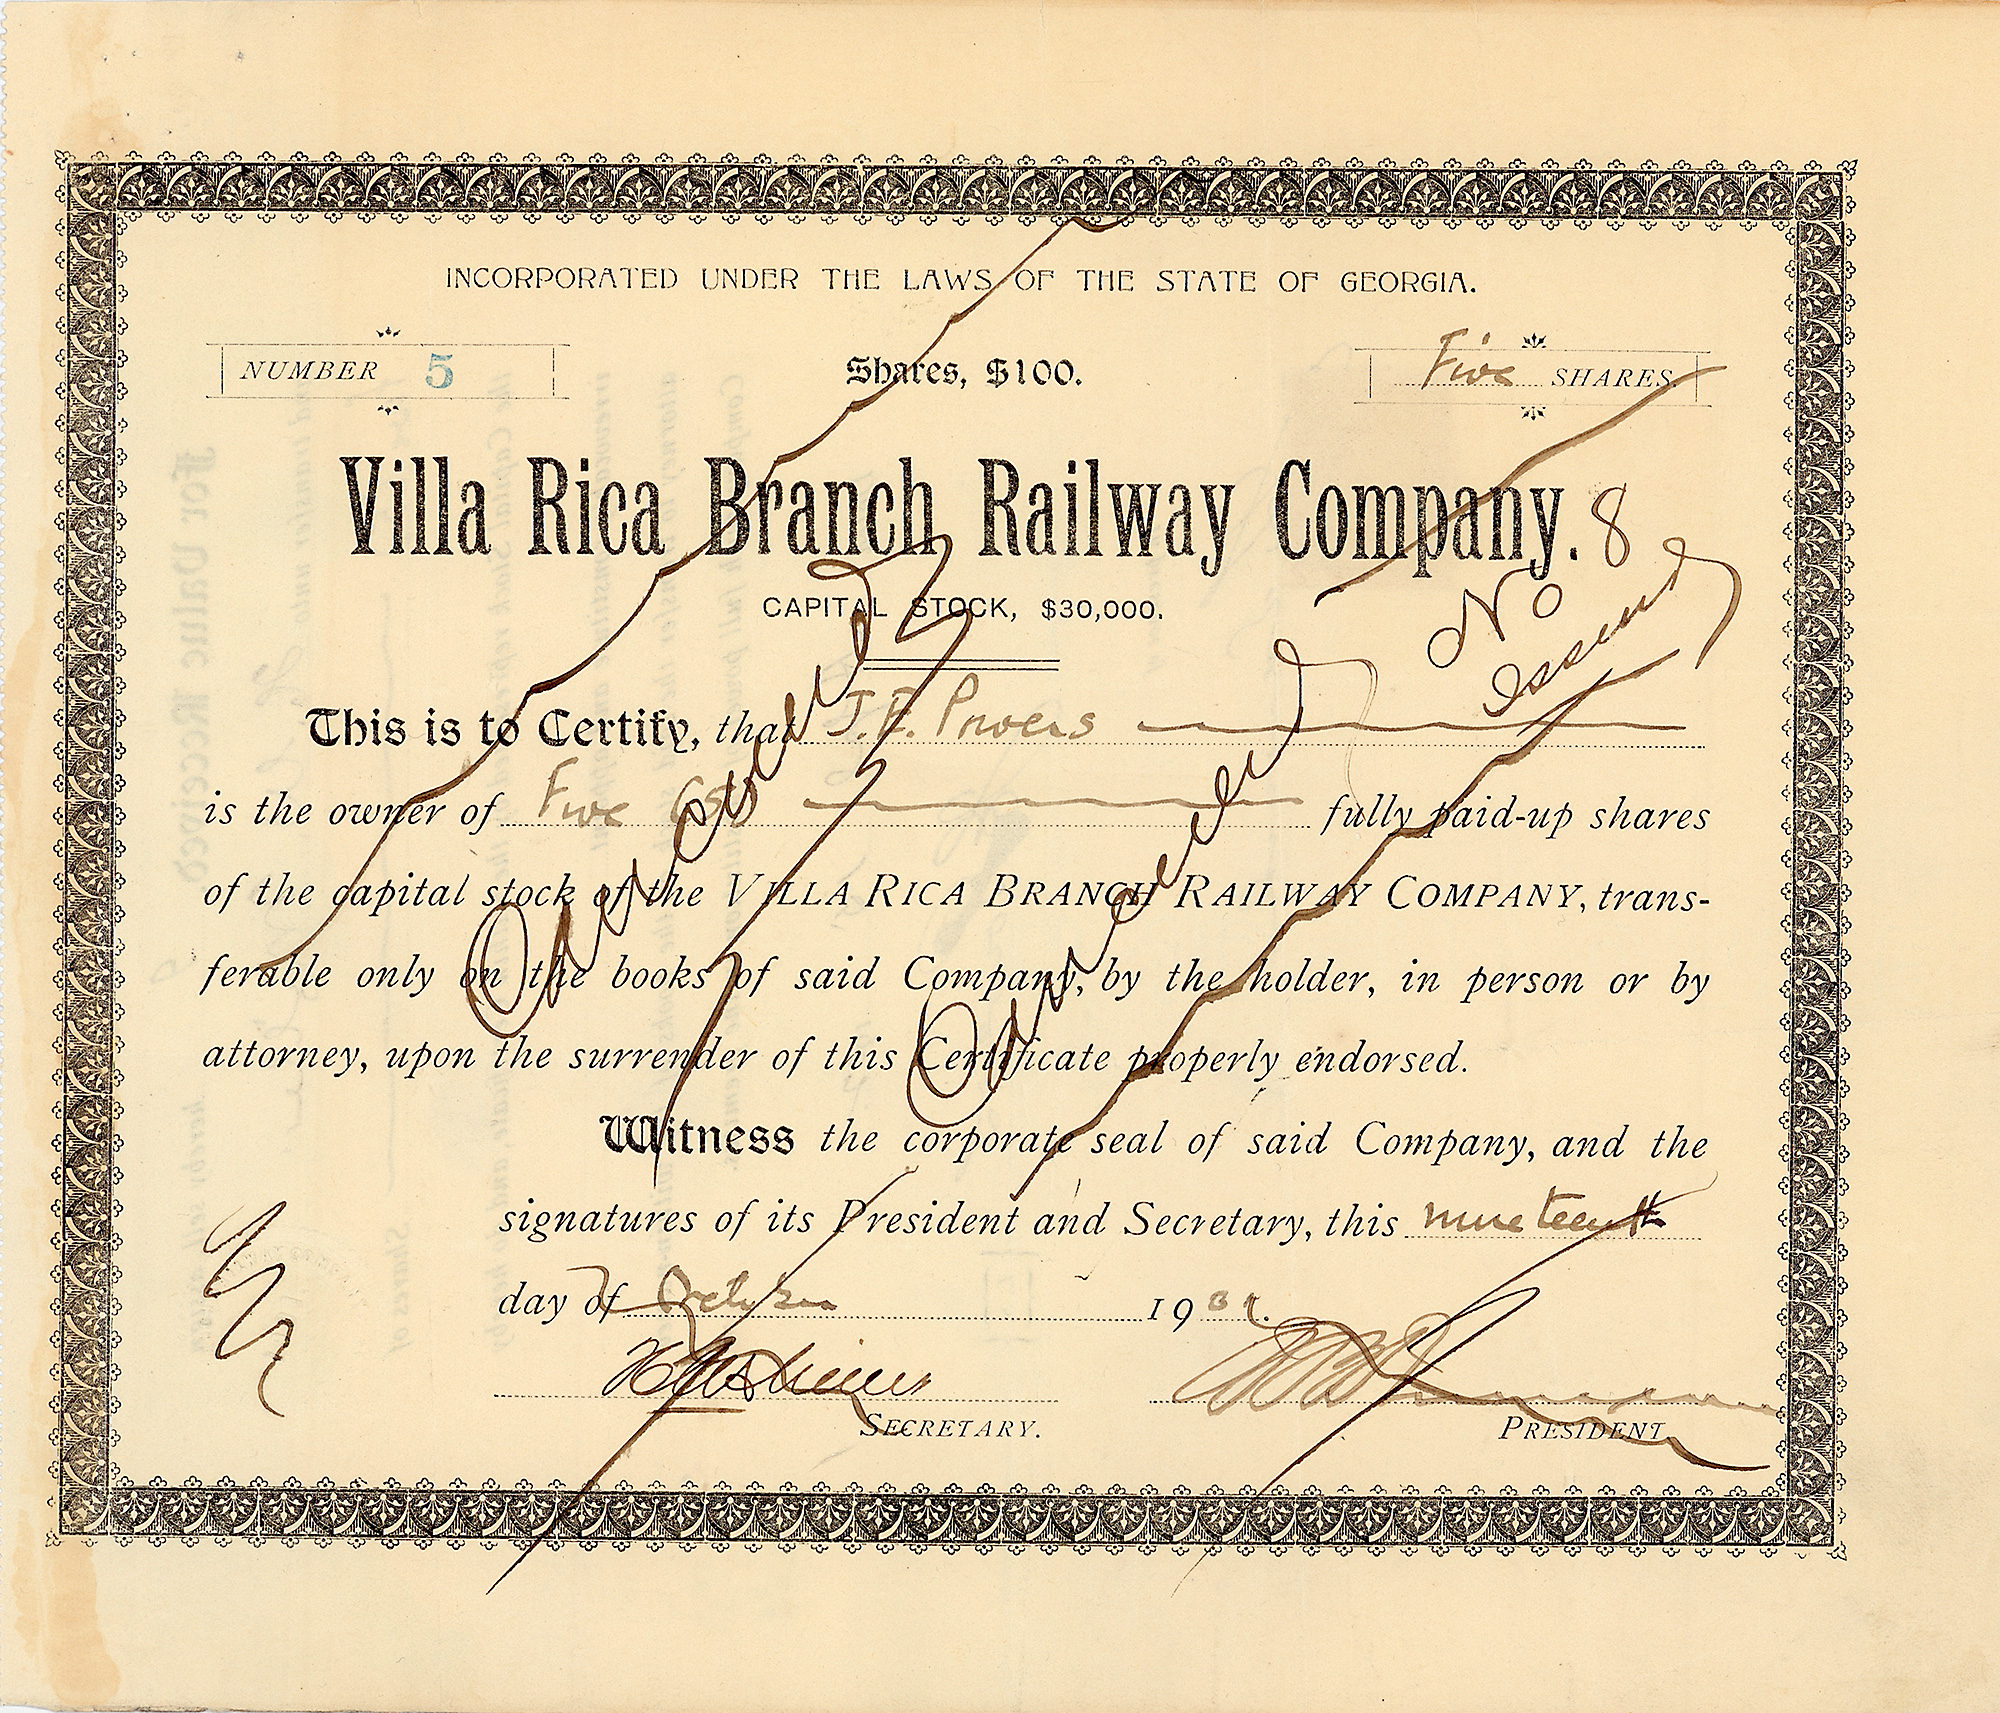 INCORPORATED UNDER THE LAWS OF THE STATE OF GEORGIA.
NUMBER 5
Shares, $100.
Five SHARES.
Villa Rica Branch Railway Company.
No 8
CAPITAL STOCK, $30,000.
Cancelled
Cancelled
This is to Certify, that J. F. Powers
is the owner of Five fully paid-up shares
of the capital stock of the VILLA RICA BRANCH RAILWAY COMPANY, trans-
ferable only on the books of said Company, by the holder, in person or by
attorney, upon the surrender of this Certificate properly endorsed.
Witness the corporate seal of said Company, and the
signatures of its President and Secretary, this nineteenth
day of October 19
SECRETARY.
PRESIDENT.
For Value Received